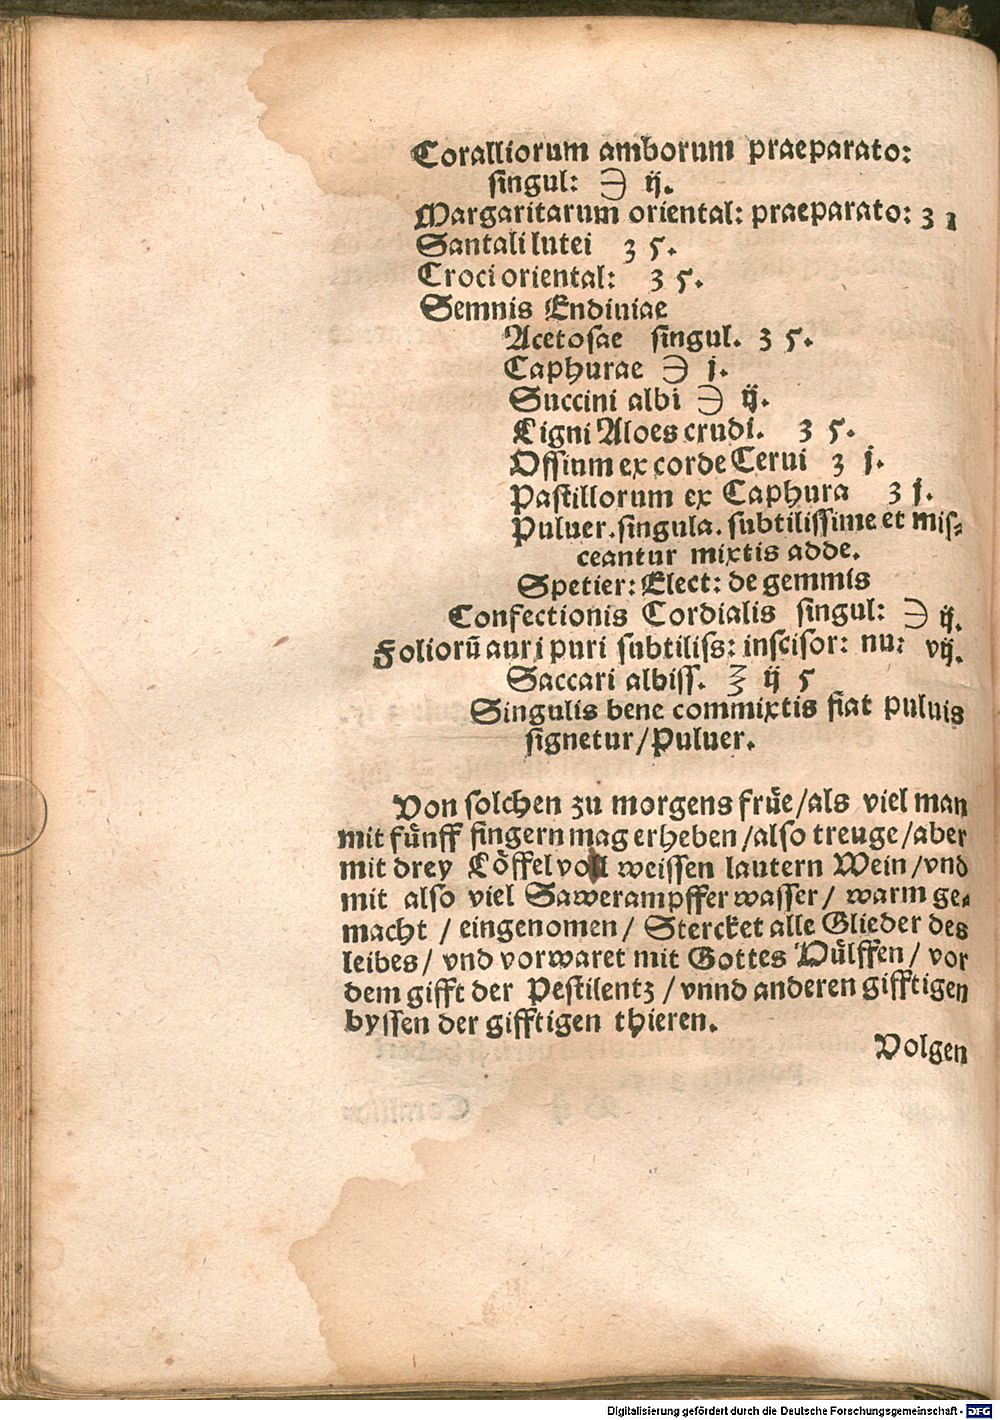 Coralliorum amborum praeparato:
singul: ℈ ij.
Margaritarum oriental: praeparato: ʒ 1
Santali lutei ʒ 5.
Croci oriental: ʒ 5.
Semnis Endiuiae
Acetosae singul. ʒ 5.
Caphurae ℈ j.
Succini albi ℈ ij.
Ligni Aloes crudi. ʒ 5.
Ossium ex corde Cerui ʒ j.
Pastillorum ex Caphura ʒ j.
Puluer. singula. subtilissime et mis-
ceantur mixtis adde.
Spetier: Elect: de gemmis
Confectionis Cordialis singul: ℈ ij.
Foliorū auri puri subtiliss: inscisor: nu: vij.
Saccari albiss. ℥ ij 5
Singulis bene commixtis fiat puluis
signetur/Puluer.
Von solchen zu morgens früe/als viel man
mit fünff fingern mag erheben/also treuge/aber
mit drey Löffel voll weissen lautern Wein/vnd
mit also viel Sawerampffer wasser/ warm ge-
macht / eingenomen/ Stercket alle Glieder des
leibes/ vnd vorwaret mit Gottes Hülffen/ vor
dem gifft der Pestilentz / vnnd anderen gifftigen
byssen der gifftigen thieren.
Volgen
Digitalisierung gefördert durch die Deutsche Forschungsgemeinschaft - DFG